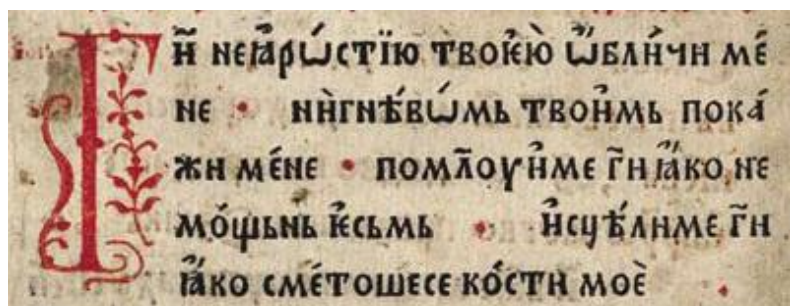 Гн҃ неꙗ҆рѡ́стїю твоѥ҆ю̀ ѡ҆бли́чи ме́
не • нѝгнѣ́вѡ́мь твои҆мь пока́
жи ме́не • помл҃оуи҆ме г҃и ꙗ҆ко не
мо́щьнь ѥ҆сьмь • и҆сцѣ́лиме г҃и
ꙗ҆ко сме́тошесе ко́сти моѐ •